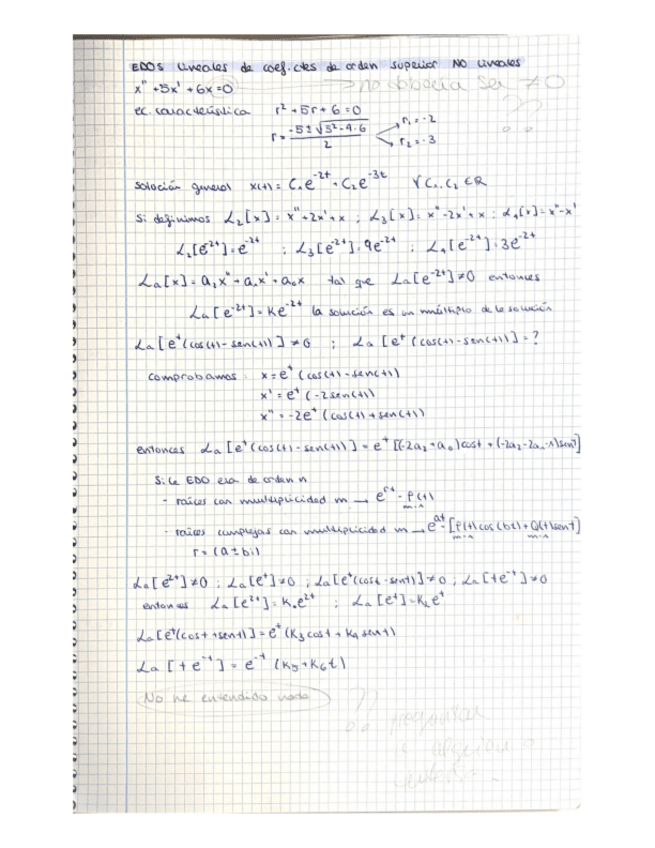 EDOS Lineales de coef. ctes de orden superior NO lineales
x'' + 5x' + 6x = 0 → no debería ser ≠ 0
ec. característica r² + 5r + 6 = 0 ??
r = (-5 ± √(5² - 4·6)) / 2 r₁ = -2 r₂ = -3
Solución general x(t) = C₁e^(-2t) + C₂e^(-3t) ∀ C₁, C₂ ∈ R
Si definimos L₂[x] = x'' + 2x' + x ; L₃[x] = x'' - 2x' + x ; L₄[x] = x'' - x'
L₂[e^(-2t)] = e^(-2t) ; L₃[e^(-2t)] = 9e^(-2t) ; L₄[e^(-2t)] = 3e^(-2t)
La[x] = a₂x'' + a₁x' + a₀x tal que La[e^(-2t)] ≠ 0 entonces
La[e^(-2t)] = Ke^(-2t) la solución es un múltiplo de la solución
La[e^t(cos(t) - sen(t))] ≠ 0 ; La[e^t(cos(t) - sen(t))] = ?
comprobamos: x = e^t (cos(t) - sen(t))
x' = e^t (-2sen(t))
x'' = -2e^t (cos(t) + sen(t))
entonces La[e^t(cos(t) - sen(t))] = e^t [(-2a₂ + a₀)cost + (-2a₂ - 2a₁ - 1)sent]
Si la EDO era de orden n
- raíces con multiplicidad m → e^(rt) · P(t)
m-1
- raíces complejas con multiplicidad m → e^(at) · [P(t)cos(bt) + Q(t)sent]
m-1 m-1
r = (a ± bi)
La[e^(2t)] ≠ 0 ; La[e^t] ≠ 0 ; La[e^t(cost - sent)] ≠ 0 ; La[te^(-t)] ≠ 0
entonces La[e^(2t)] = K₁e^(2t) ; La[e^t] = K₂e^t
La[e^t(cost + sent)] = e^t (K₃cost + K₄sent)
La[te^(-t)] = e^(-t) (K₅ + K₆t)
No he entendido nada ??
preguntar